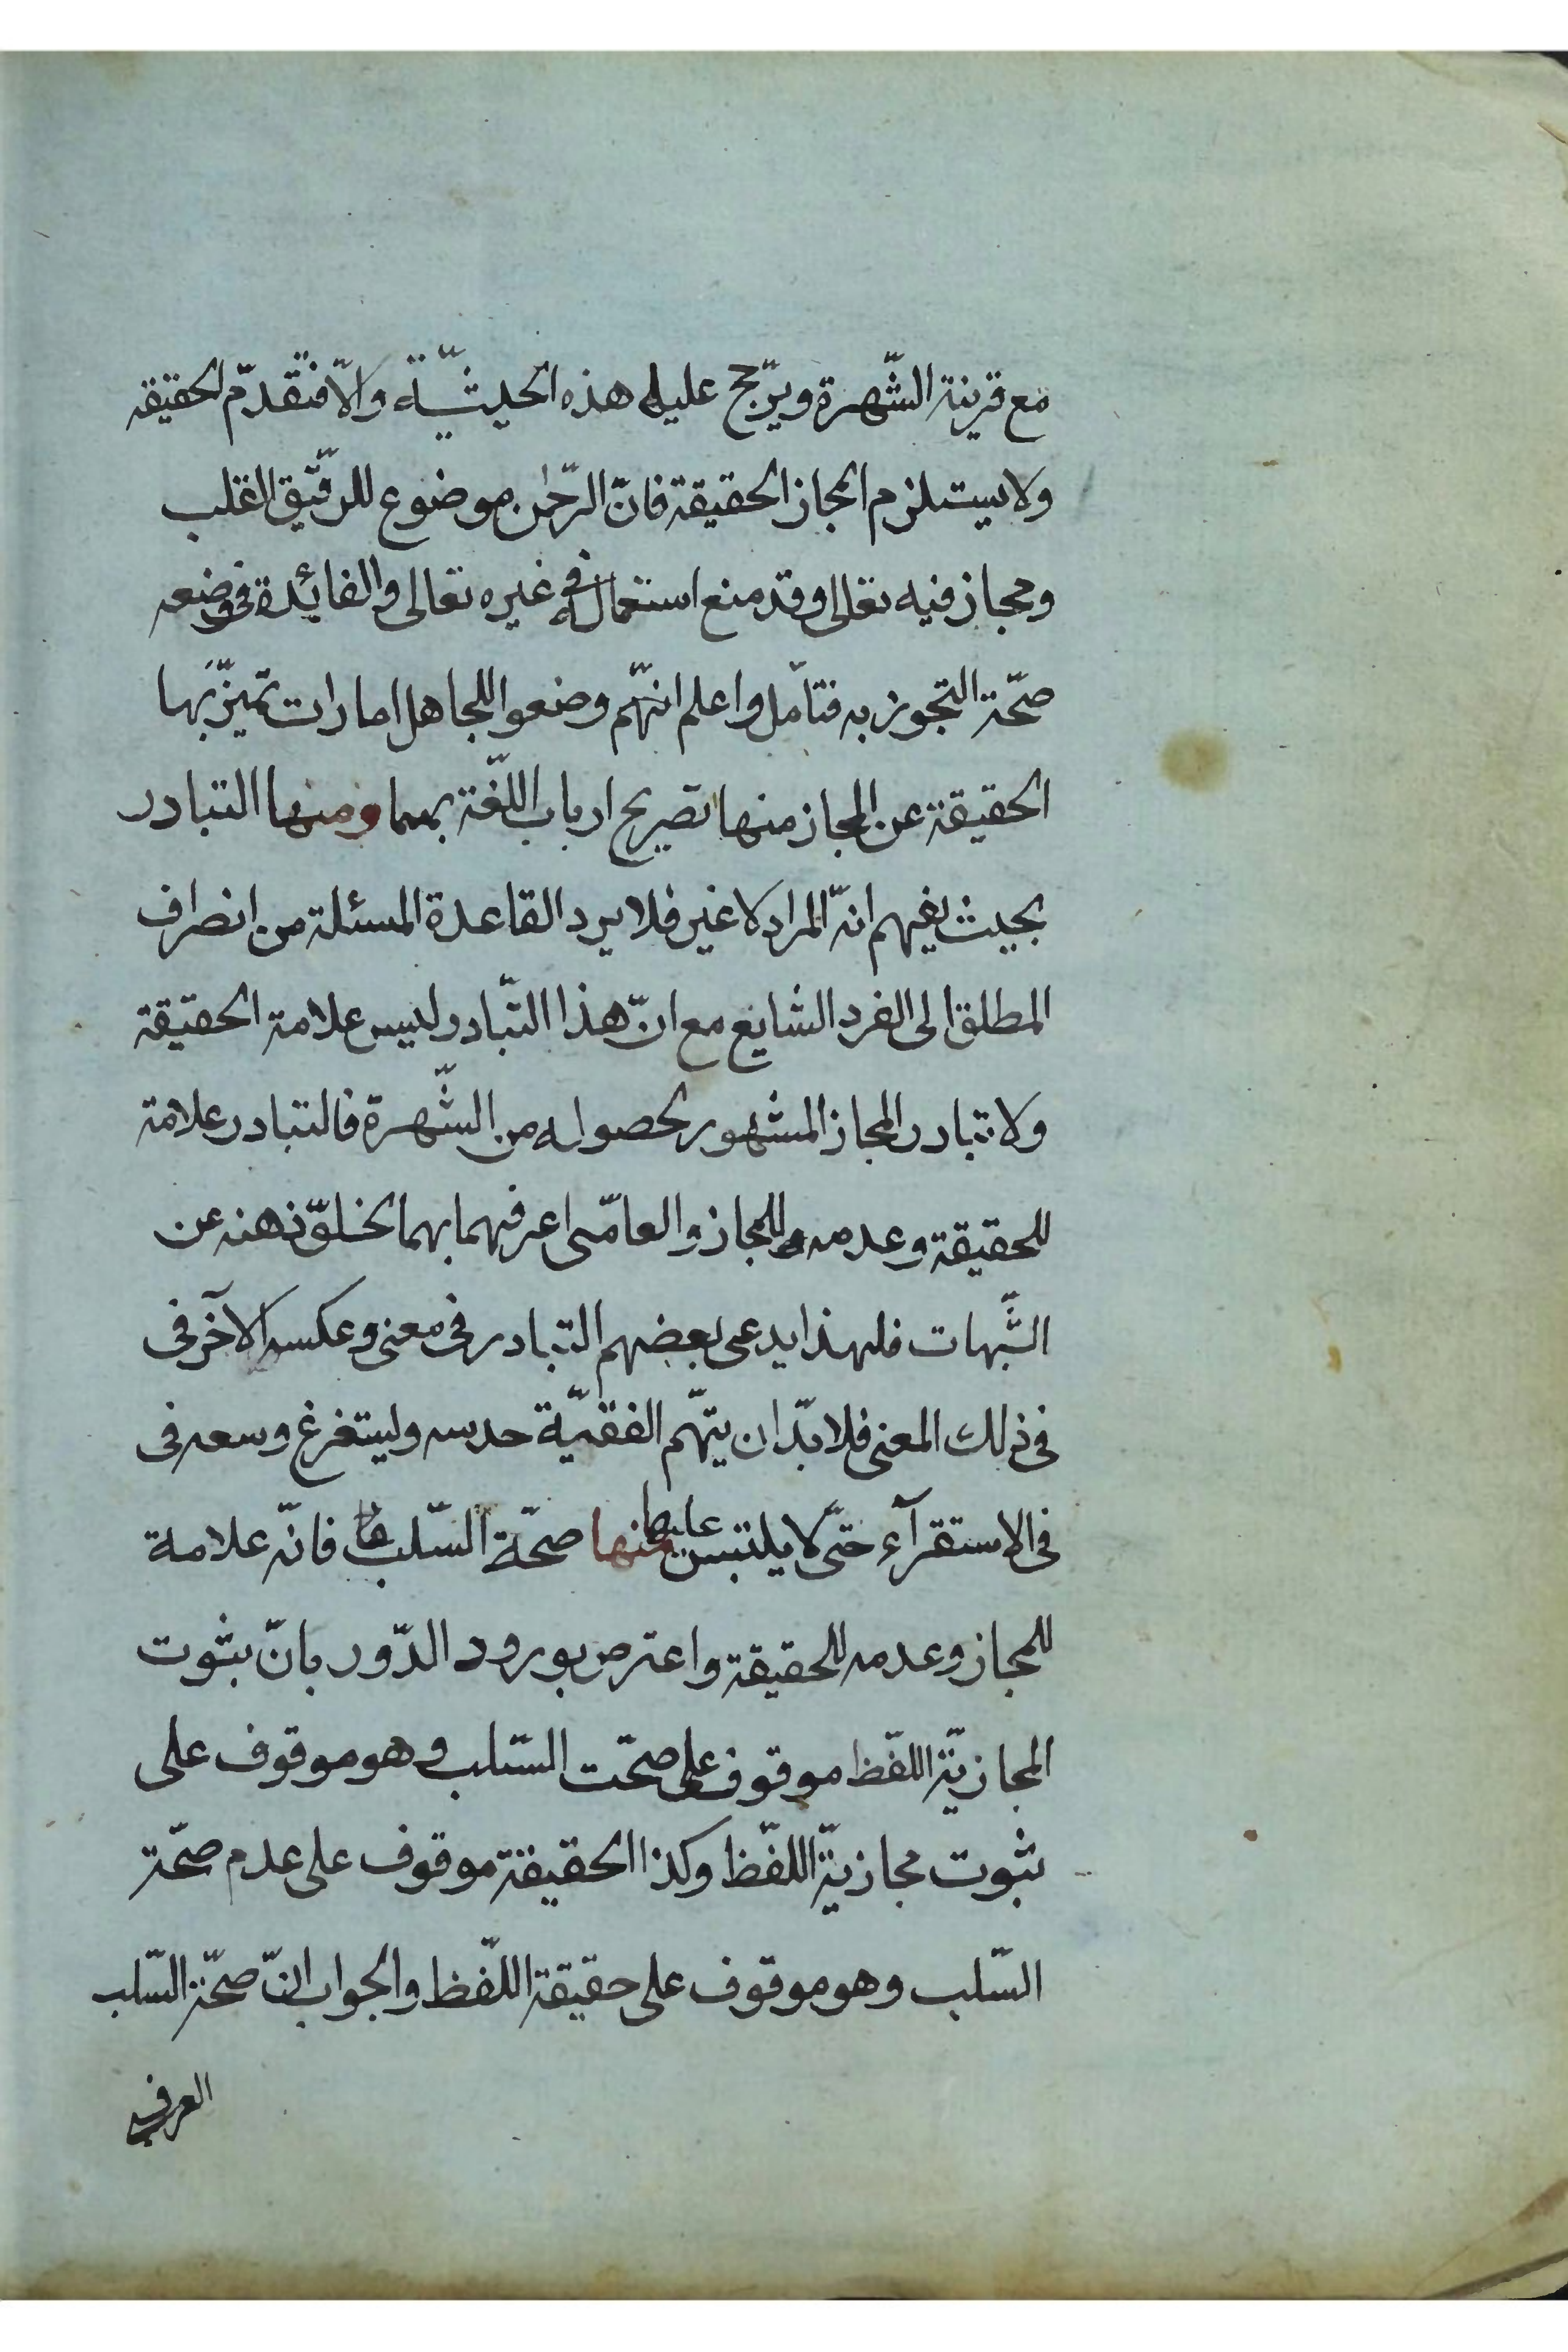 مع قرينة الشّهرة ويرّجح عليه هذه الحيثيّة والّا فتقدّم الحقيقة
ولا يستلزم المجاز الحقيقة فانّ الرّحمن موضوع للرّقيق القلب
ومجاز فيه تعالى وقد منع استعماله في غيره تعالى والفائدة في وضعه
صحّة التجوز به فتأمّل واعلم انّهم وضعوا للجاهل امارات تميّز بها
الحقيقة عن المجاز منها تصريح ارباب اللّغة بهما ومنها التبادر
بحيث يفهم انّه المراد لا غير فلا يرد القاعدة المسئلة من انصراف
المطلق الى الفرد الشايع مع انّ هذا التّبادر ليس علامة الحقيقة
ولا تبادر المجاز المشهور لحصوله من الشّهرة فالتبادر علامة
للحقيقة وعدمه للمجاز والعامّى اعرفهما بهما لخلوّ ذهنه عن
الشّبهات فلهذا يدعى بعضهم التبادر في معنى وعكسه الآخر في
في ذلك المعنى فلا بدّ ان يتّهم الفقيّه حدسه وليستفرغ وسعه في
في الاستقرآء حتّى لا يلتبس عليها منها صحّة السّلب فانّه علامة
للمجاز وعدمه للحقيقة واعترض بورود الدّور بانّ بثوت
المجازيّة اللفّظ موقوف على صحّت السّلب وهو موقوف على
ثبوت مجازيّة اللفّظ وكذا الحقيقة موقوف على عدم صحّة
السّلب وهو موقوف على حقيقة اللّفظ والجواب انّ صحّة السّلب
العرفي